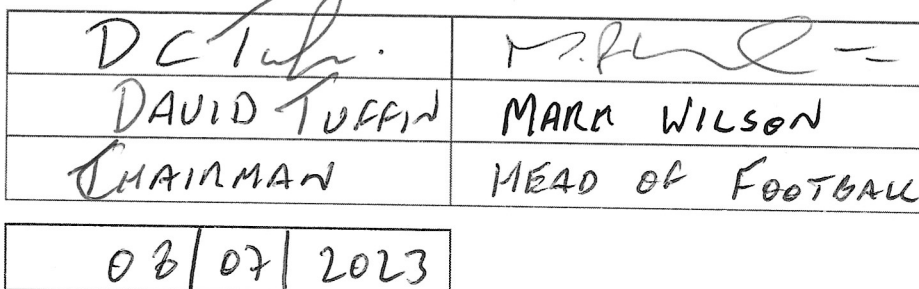 D C Tuffin. 
DAVID TUFFIN MARK WILSON
CHAIRMAN HEAD OF FOOTBALL
08/07/2023